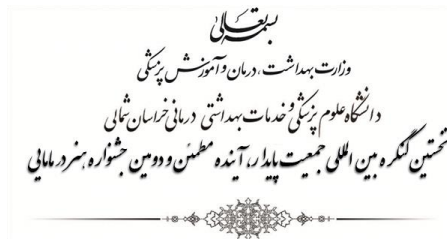 بسمه تعالی
وزارت بهداشت، درمان و آموزش پزشکی
دانشگاه علوم پزشکی و خدمات بهداشتی درمانی خراسان شمالی
نخستین کنگره بین المللی جمعیت پایدار، آینده مطمئن و دومین جشنواره هنر در مامایی